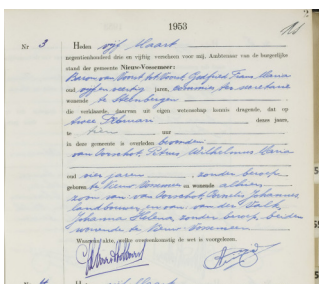 1953
Nr 3 Heden vijf Maart
negentienhonderd drie en vijftig verscheen voor mij, Ambtenaar van de burgerlijke
stand der gemeente Nieuw-Vossemeer:
Godfried Frans Maria
oud vijf en veertig jaren, ter secretarie
wonende te Steenbergen
die verklaarde, daarvan uit eigen wetenschap kennis dragende, dat op
twee Februari dezes jaars,
te tien uur
in deze gemeente is overleden bevonden
van Oorschot, Petrus Wilhelmus Maria
oud vier jaren, zonder beroep
geboren te Nieuw-Vossemeer en wonende alhier
zoon van van Oorschot, Cornelis Johannes
landbouwer, en van van der
Johanna Helena, zonder beroep, beiden
wonende te Nieuw-Vossemeer
Waarvan akte, welke overeenkomstig de wet is voorgelezen.